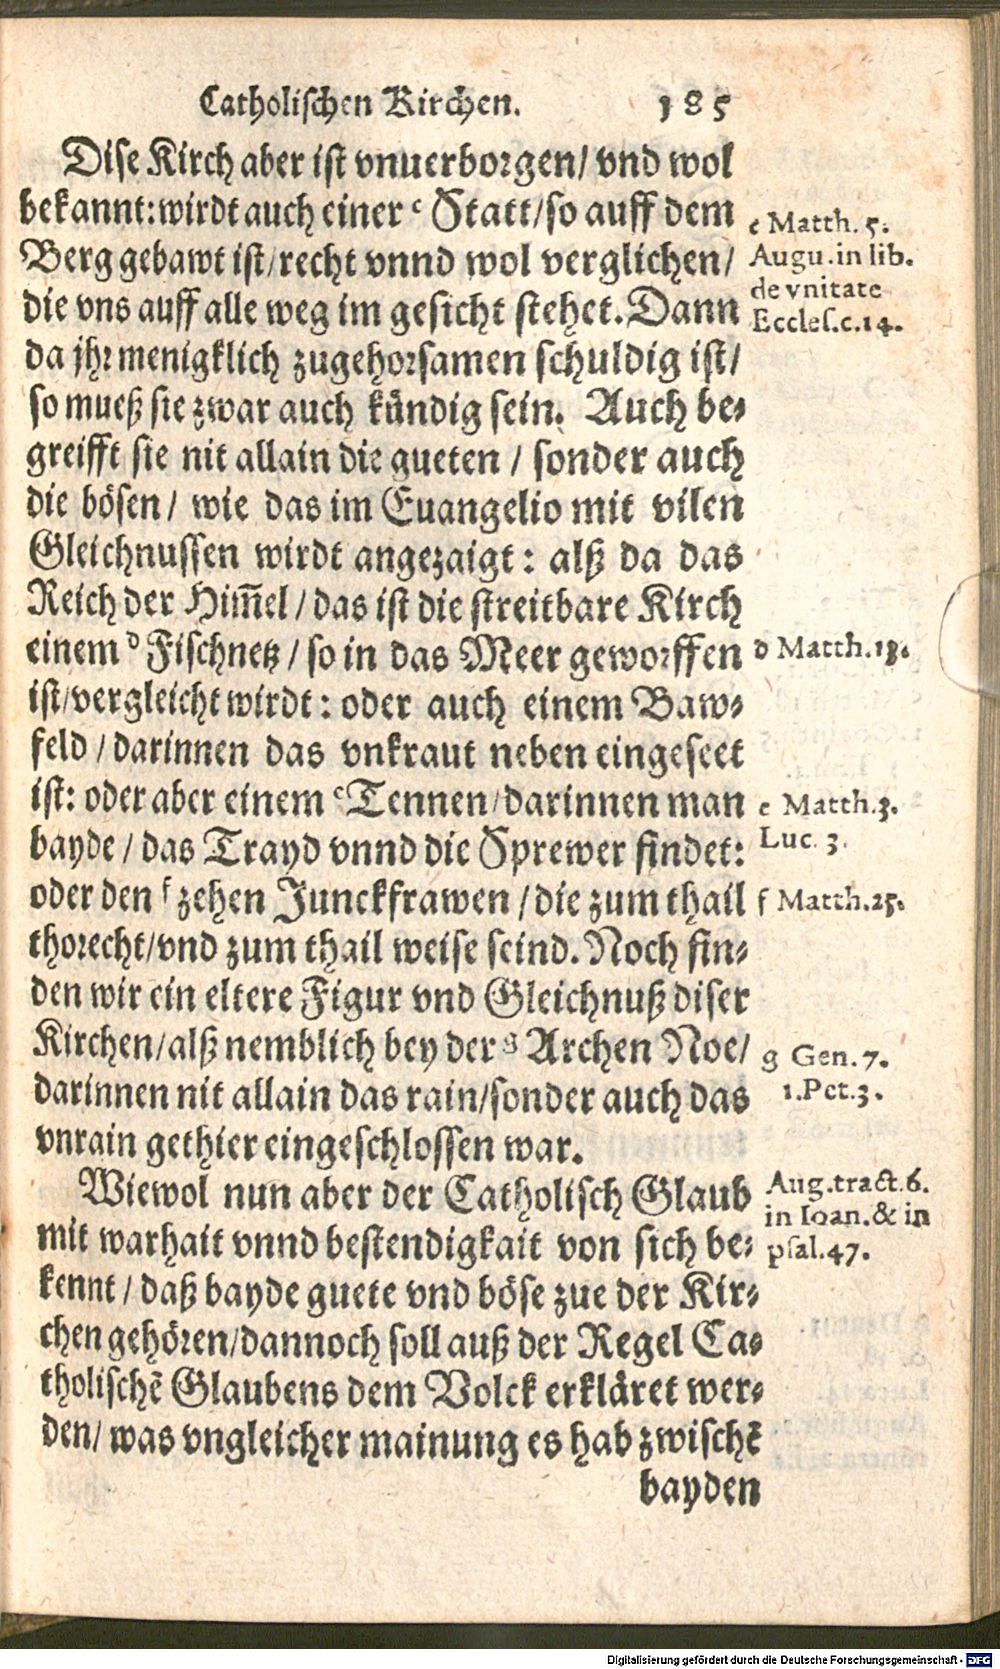 Catholischen Kirchen. 185
Dise Kirch aber ist vnuerborgen/ vnd wol
bekannt: wirdt auch einer c Statt/ so auff dem
Berg gebawt ist/ recht vnnd wol verglichen/
die vns auff alle weg im gesicht stehet. Dann
da jhr menigklich zugehorsamen schuldig ist/
so mueß sie zwar auch kündig sein. Auch be⸗
greifft sie nit allain die gueten / sonder auch
die bösen / wie das im Euangelio mit vilen
Gleichnussen wirdt angezaigt: alß da das
Reich der Him̃el / das ist die streitbare Kirch
einem d Fischnetz / so in das Meer geworffen
ist/ vergleicht wirdt: oder auch einem Baw⸗
feld / darinnen das vnkraut neben eingeseet
ist: oder aber einem e Tennen/ darinnen man
bayde / das Trayd vnnd die Sprewer findet:
oder den f zehen Junckfrawen / die zum thail
thorecht/ vnd zum thail weise seind. Noch fin⸗
den wir ein eltere Figur vnd Gleichnuß diser
Kirchen/ alß nemblich bey der g Archen Noe/
darinnen nit allain das rain/ sonder auch das
vnrain gethier eingeschlossen war.
Wiewol nun aber der Catholisch Glaub
mit warhait vnnd bestendigkait von sich be⸗
kennt / daß bayde guete vnd böse zue der Kir⸗
chen gehören/ dannoch soll auß der Regel Ca⸗
tholischẽ Glaubens dem Volck erkläret wer⸗
den/ was vngleicher mainung es hab zwischẽ
bayden
c Matth. 5.
Augu. in lib.
de vnitate
Eccles. c. 14.
d Matth. 13.
e Matth. 3.
Luc. 3.
f Matth. 25.
g Gen. 7.
1. Pet. 3.
Aug. tract. 6.
in Ioan. & in
psal. 47.
Digitalisierung gefördert durch die Deutsche Forschungsgemeinschaft - DFG